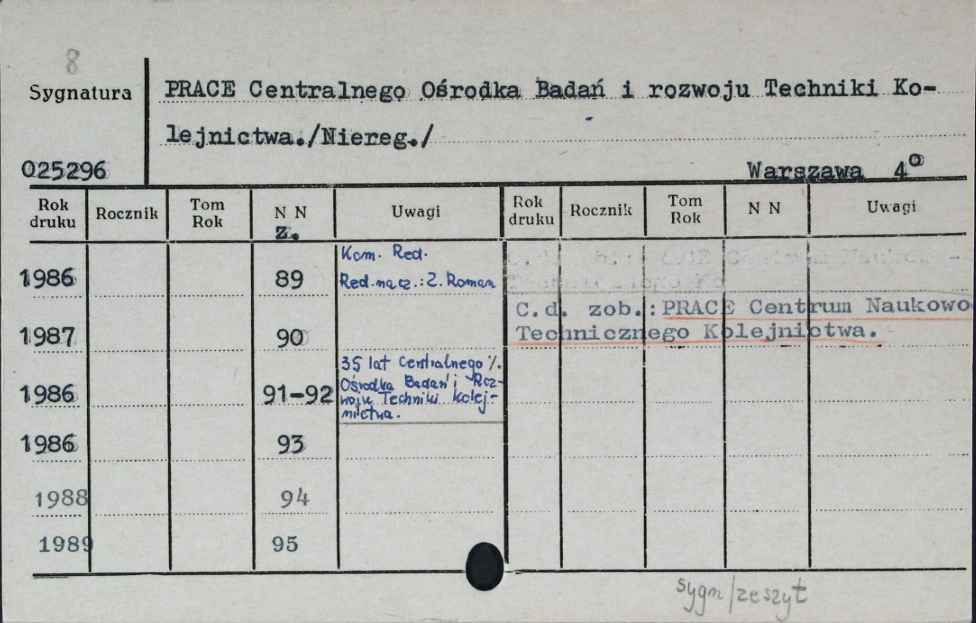 8
Sygnatura
025296
PRACE Centralnego Ośrodka Badań i rozwoju Techniki Ko-
lejnictwa./Niereg./
Warszawa 4°
Rok druku Rocznik Tom Rok N N Uwagi Rok druku Rocznik Tom Rok N N Uwagi
z.
1986 89 Kom. Red.
Red. nacz.: Z. Roman
C.d. zob.: PRACE Centrum Naukowo
Technicznego Kolejnictwa.
1987 90
1986 91-92 35 lat Centralnego
Ośrodka Badań i Roz-
woju Techniki Kolej-
nictwa.
1986 93
1988 94
1989 95
sygn/zeszyt